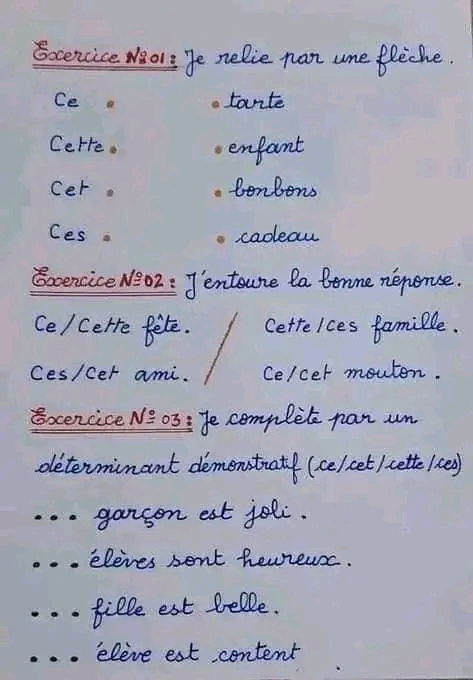 Exercice N°01: Je relie par une flèche.
Ce • • tarte
Cette • • enfant
Cet • • bonbons
Ces • • cadeau
Exercice N°02: J'entoure la bonne réponse.
Ce/Cette fête. / Cette/ces famille.
Ces/Cet ami. Ce/cet mouton.
Exercice N° 03: Je complète par un
déterminant démonstratif (ce/cet/cette/ces)
... garçon est joli.
... élèves sont heureux.
... fille est belle.
... élève est content